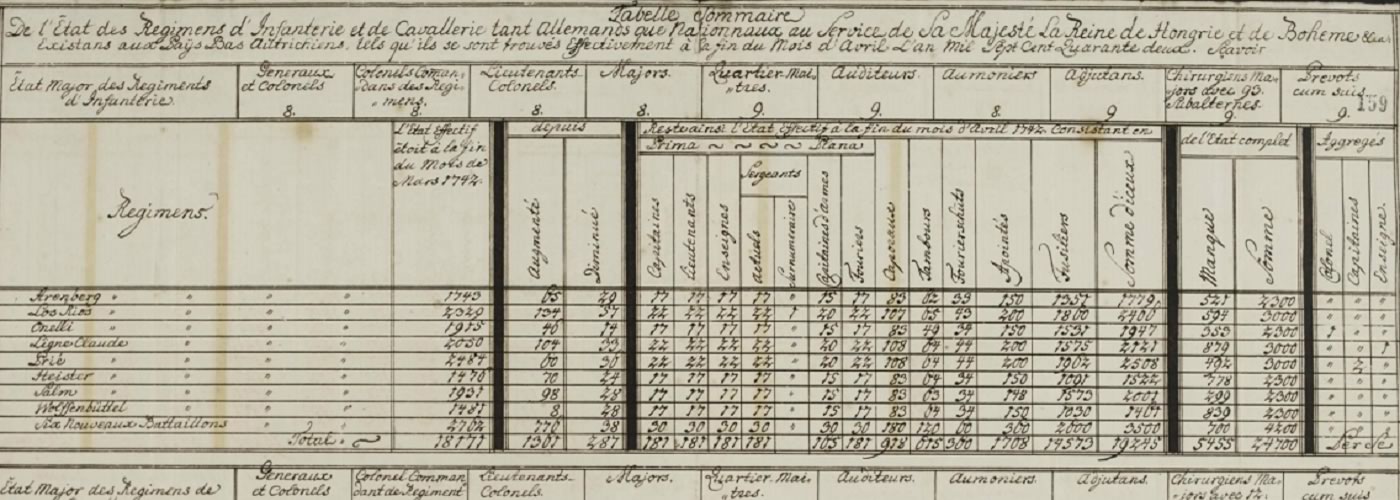 Tabelle Sommaire
De l'Etat des Regimens d'Infanterie et de Cavallerie tant Allemands que Nationnaux au Service de Sa Majesté La Reine de Hongrie et de Boheme
Existans aux Païs Bas Autrichiens, tels qu'ils se sont trouvés Effectivement à la fin du Mois d'Avril L'an Mil Sept Cent Quarante deux. Savoir
Etat Major des Regiments d'Infanterie.
Generaux et Colonels 8.
Colonels Coman,, dans des Regi,, mens. 8.
Lieutenants Colonels. 8.
Majors. 8.
Quartier-Mai,, tres. 9.
Auditeurs. 9.
Aumoniers 8.
Adjutans. 9
Chirurgiens Ma,, jors avec 93. Subalternes. 9.
Prevots cum suis. 9.
159
Regimens.
L'Etat Effectif étoit à la fin du Mois de Mars 1742.
depuis
Augmenté
Diminué
Reste ainsi l'Etat Effectif à la fin du mois d'Avril 1742. Consistant en
Prima ~ ~ ~ ~ Plana
Capitaines
Lieutenants
Enseignes
Sergeants
actuels
surnumeraire
Capitaines d'armes
Fouriers
Caporaux
Tambours
Fourierschüts
Apointés
Fusiliers
Somme d'iceux
de l'Etat complet
Manque
Somme
Aggregés
Colonel
Capitaines
Enseigne.
Arenberg " " " " 1743 65 29 17 17 17 17 " 15 17 83 62 33 150 1351 1779 521 2300 " " "
Los Rios " " " " 2329 134 57 22 22 22 22 1 20 22 107 65 43 200 1860 2406 594 3000 " " "
Onelli " " " " 1915 46 14 17 17 17 17 " 15 17 83 49 34 150 1531 1947 353 2300 1 " "
Ligne Claude " " " 2050 104 33 22 22 22 22 " 20 22 108 64 44 200 1575 2121 879 3000 " " 1
Prié " " " " 2484 60 36 22 22 22 22 " 20 22 108 64 44 200 1962 2508 492 3000 " 2 "
Heister " " " " 1476 70 24 17 17 17 17 " 15 17 83 64 34 150 1091 1522 778 2300 " " "
Salm " " " " 1931 98 28 17 17 17 17 " 15 17 83 63 34 148 1573 2001 299 2300 " " "
Wolffenbüttel " " " 1481 8 28 17 17 17 17 " 15 17 83 64 34 150 1030 1461 839 2300 " " "
Six Nouveaux Battaillons " " 2762 776 38 30 30 30 30 " 30 30 180 120 " 300 2000 3500 700 4200 " " "
Total 18171 1361 287 181 181 181 181 165 181 918 615 300 1708 14573 19245 5455 24700 Per Se
Etat Major des Regimens de
Generaux et Colonels
Colonel Comman dant de Regiment
Lieutenants Colonels.
Majors.
Quartier Mai,, tres.
Auditeurs.
Aumoniers.
Adjutans.
Chirurgiens Ma,, jors avec 12.
Prevots cum suis